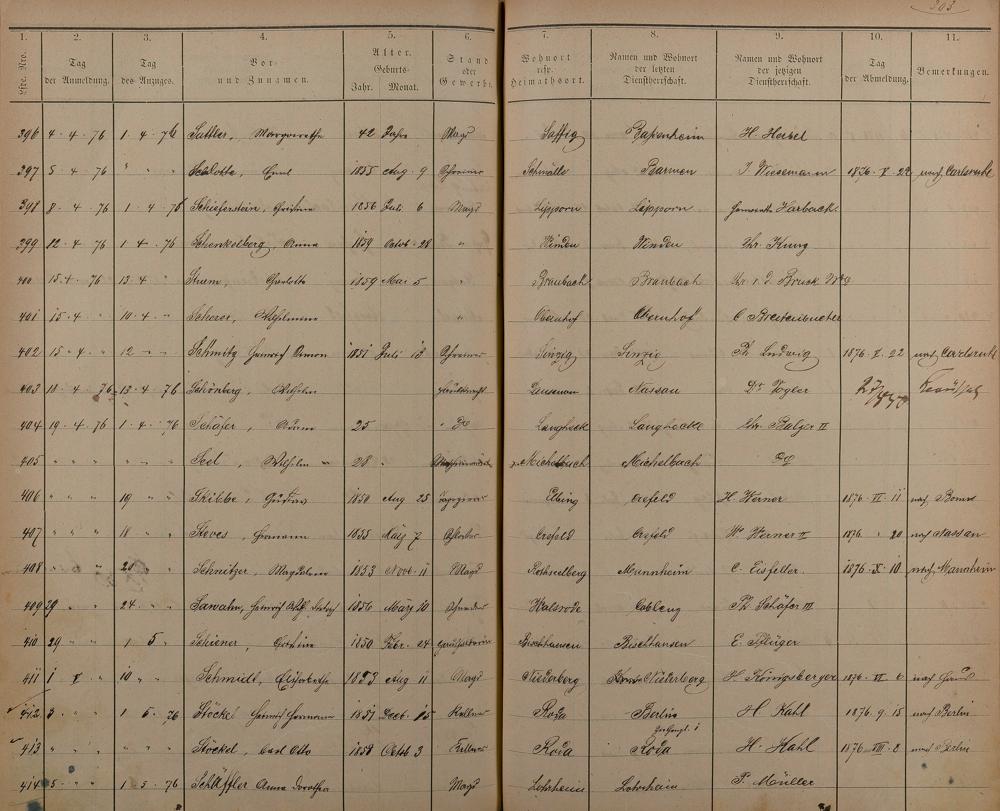 303
1. 2. 3. 4. 5. 6. 7. 8. 9. 10. 11.
Lfde. Nro. Tag der Anmeldung. Tag des Anzuges. Vor- und Zunamen. Alter. Geburts- Jahr. Monat. Stand oder Gewerbe Wohnort resp. Heimathsort. Namen und Wohnort der letzten Dienstherrschaft. Namen und Wohnort der jetzigen Dienstherrschaft. Tag der Abmeldung. Bemerkungen.
396 4 . 4 . 76 1 . 4 . 76 Sattler, Margarethe 42 Jahre Magd Saffig H. Hasel
397 5 . 4 . 76 " " " Schlotte, Emil 1855 Aug. 9 Schreiner Schmölle Barmen J Wiesemann 1876 . V . 22 nach Carlsruhe
398 8 . 4 . 76 1 . 4 . 76 Schieferstein, Christine 1856 Juli 6 Magd Lipporn Lipporn Harbach
399 12 . 4 . 76 1 . 4 . 76 Schenkelberg, Anna 1859 Octob . 28 " Winden Winden Chr. Kunz
400 15 . 4 . 76 13 . 4 " Sturm, Charlotte 1859 Mai 5 " Braubach Braubach Bruck
401 15 . 4 " 10 . 4 . Scherer, Wilhelmine " Obernhof Obernhof C Breitenbucher
402 15 . 4 . " 12 " " Schmitz Heinrich Simon 1851 Juli 13 Schreiner Sinzig Sinzig Ph. Ludwig 1876 . V . 22 nach Carlsruhe
403 18 . 4 . 76 13 . 4 . 76 Schönberg, Wilhelm Nassau Dr Vogler
404 19 . 4 . 76 1 . 4 . 76 Schäfer, 25 " Do Langhecke Langhecke Chr. Balzer II
405 " " " " " " Seel, Wilhelm 28 " Michelbach Michelbach do
406 " " " 19 " " Skibbe, Gustav 1850 Aug 25 Elbing Crefeld H. Werner 1876 . VI . 11 nach Bonn
407 " " " 18 " " Steves, Hermann 1855 März 7 Crefeld Crefeld W. Werner II 1876 . " 20 nach Nassau
408 " " " 20 " " Schnitzer, Magdalena 1853 Nov. 11 Magd Rothselberg Mannheim C. Eisfeller 1876 . X . 10 nach Mannheim
409 29 " " 24 " " Sawahn, Heinrich 1856 März 10 Schneider Walsrode Coblenz Ph Schäfer III
410 29 " " 1 5 " Schiener, 1850 Febr. 24 Bischhausen Bischhausen E. Pflüger
411 1 V " 10 " " Schmidt, Elisabetha 1853 Aug 11 Magd Niederberg Niederberg H. Königsberger 1876 . VI 6 nach
412 3 " " 1 5 . 76 Stöckel Heinrich Hermann 1851 Decb . 15 Kellner Roda Berlin H Kahl 1876 . 9 . 15 nach Berlin
413 " " " " " " Stöckel, Carl Otto 1858 Octob 3 Kellner Roda Roda H. Kahl 1876 VIII . 2 nach Berlin
414 5 " " 1 . 5 . 76 Schläffler Anna Dorothea Magd Lohrheim Lohrheim P. Müller